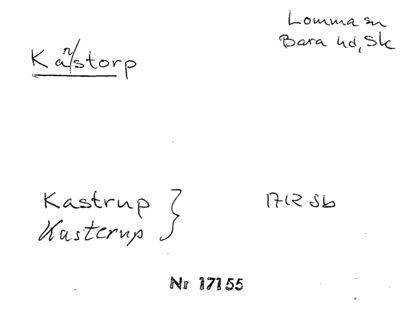 Lomma sn
Bara hd, Sk
Ka n/storp
Kastrup
Kasterup
1712 Sb
Nr 17155